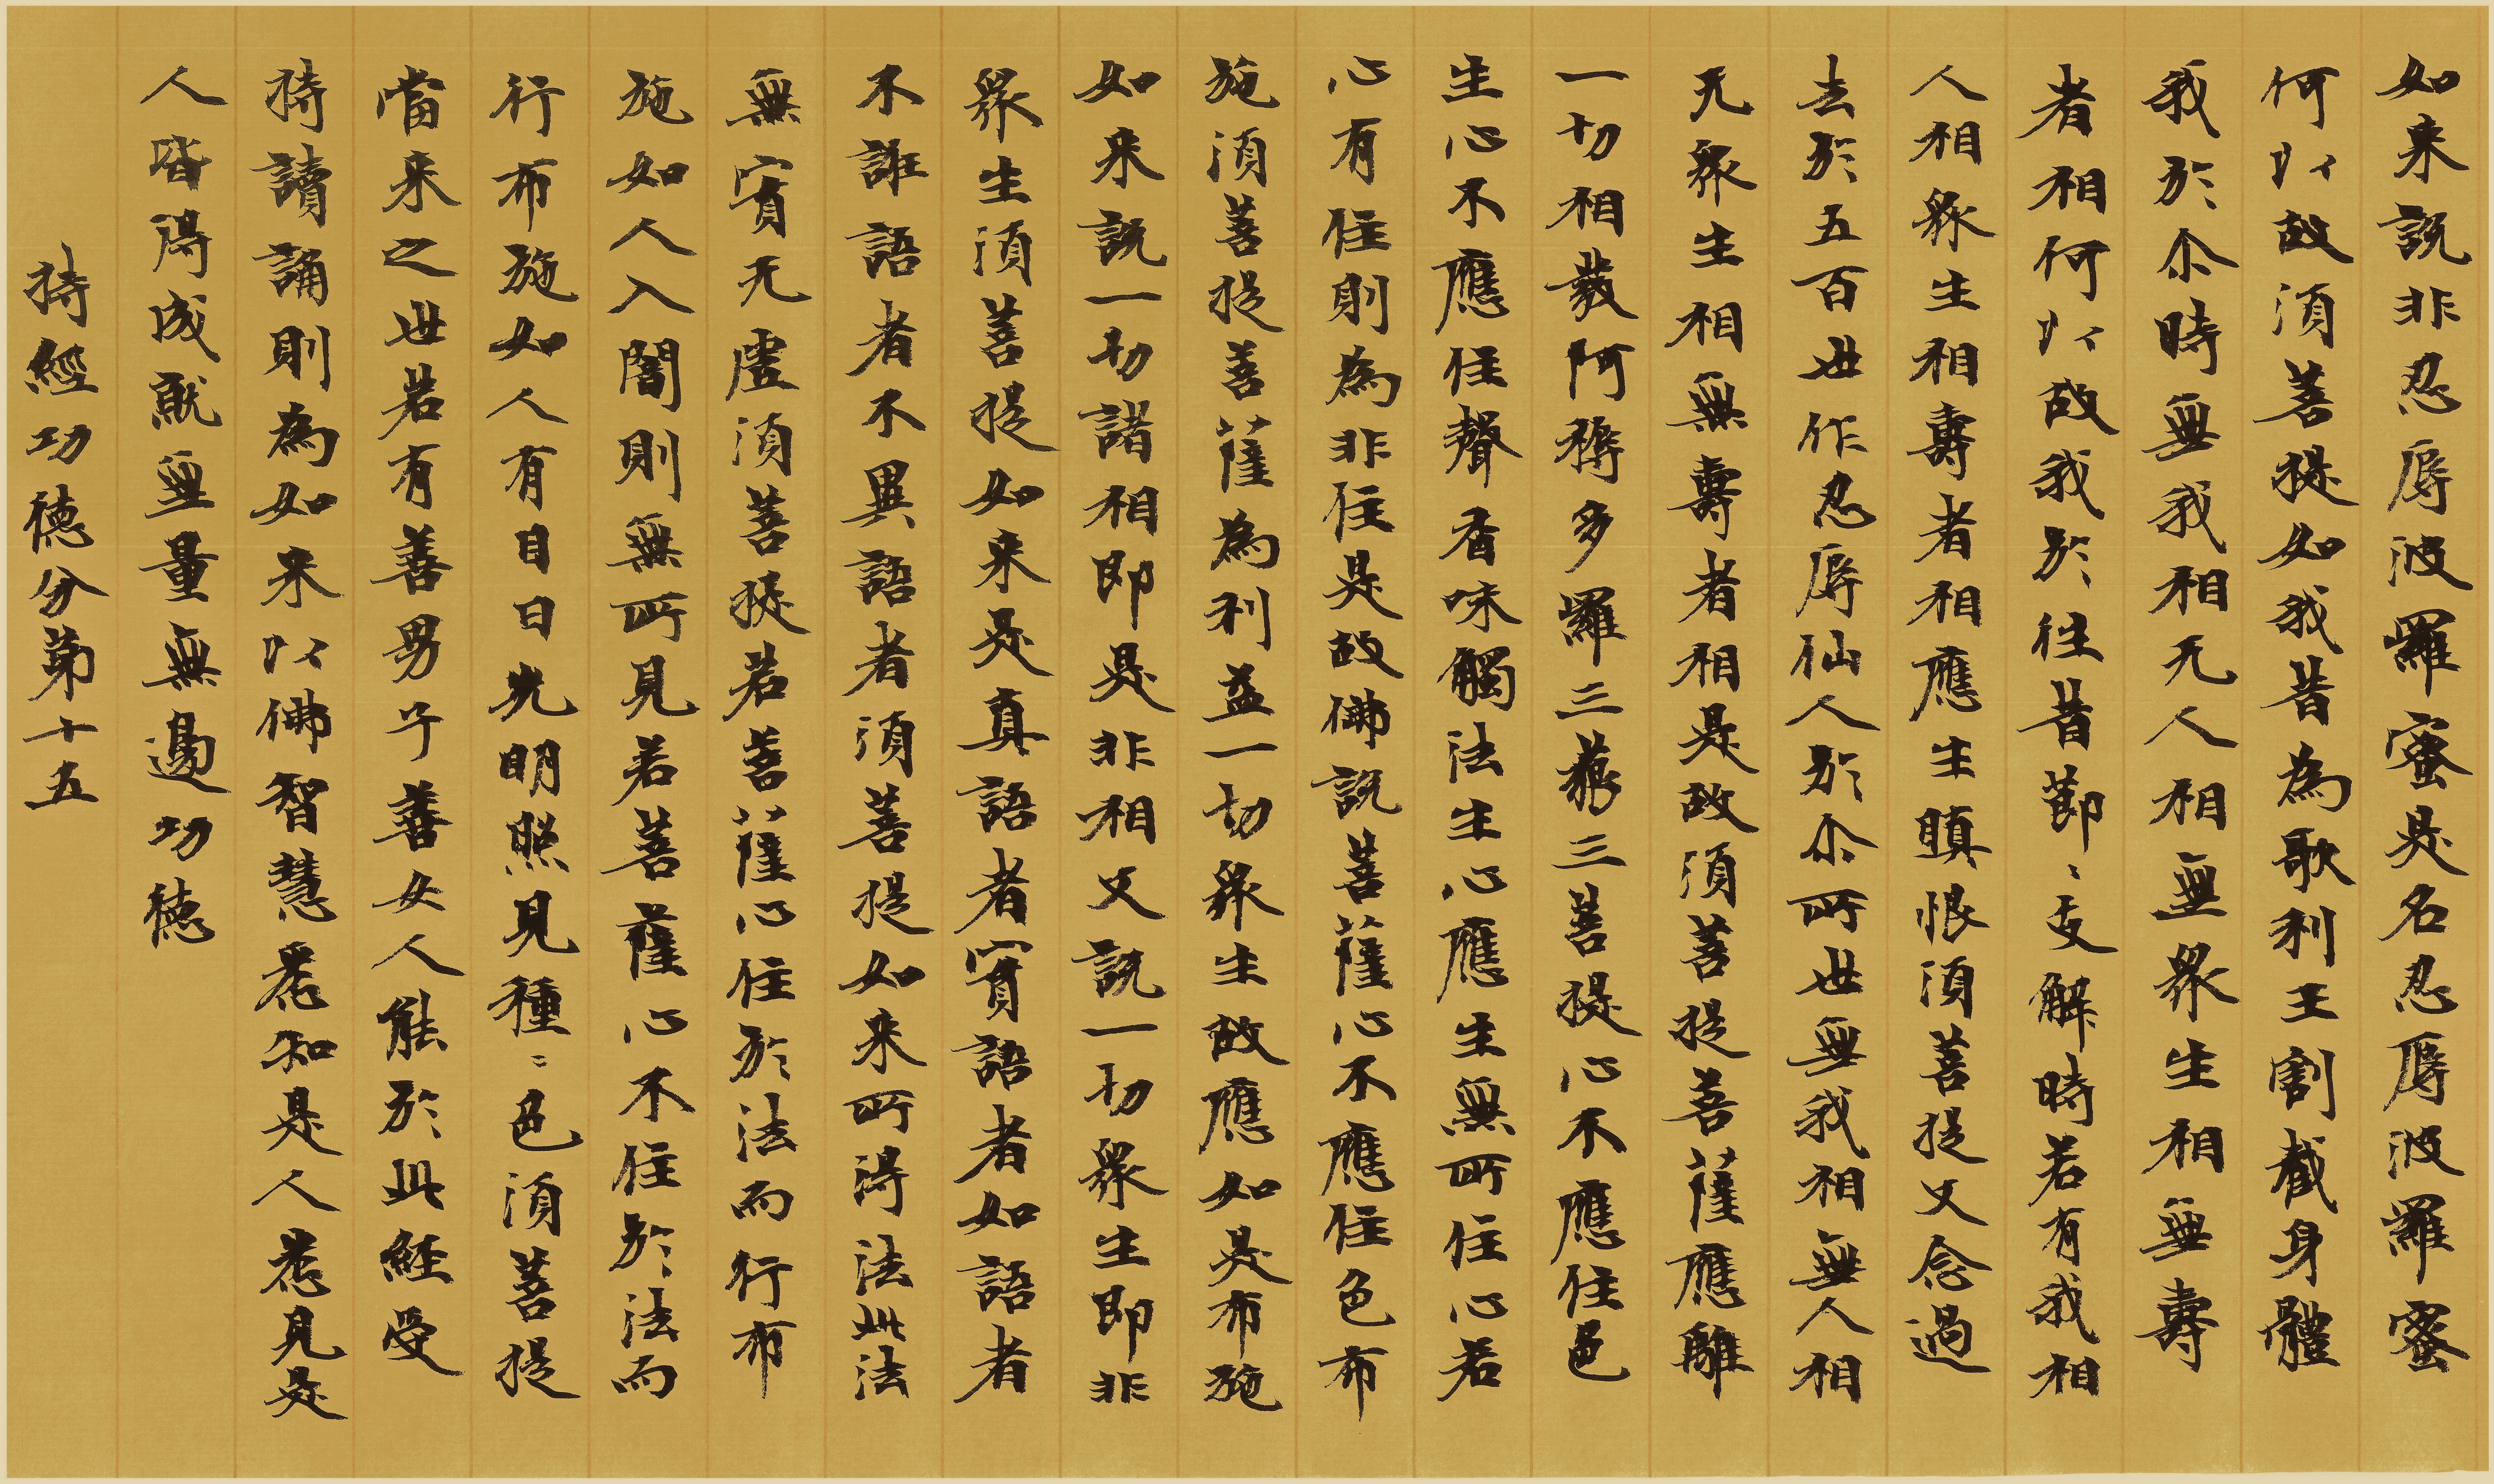 如来說非忍辱波羅蜜是名忍辱波羅蜜
何以故須菩提如我昔為歌利王割截身體
我於尒時無我相无人相無衆生相無壽
者相何以故我於往昔節〻支解時若有我相
人相衆生相壽者相應生瞋恨須菩提又念過
去於五百世作忍辱仙人於尒所世無我相無人相
无衆生相無壽者相是故須菩提菩薩應離
一切相發阿耨多羅三藐三菩提心不應住色
生心不應住聲香味觸法生心應生無所住心若
心有住則為非住是故佛說菩薩心不應住色布
施須菩提菩薩為利益一切衆生故應如是布施
如来說一切諸相即是非相又說一切衆生即非
衆生須菩提如来是真語者實語者如語者
不誑語者不異語者須菩提如来所得法此法
無實无虛須菩提若菩薩心住於法而行布
施如人入闇則無所見若菩薩心不住於法而
行布施如人有目日光明照見種〻色須菩提
當来之世若有善男子善女人能於此經受
持讀誦則為如来以佛智慧悉知是人悉見是
人皆得成就無量無邊功德
持經功德分第十五